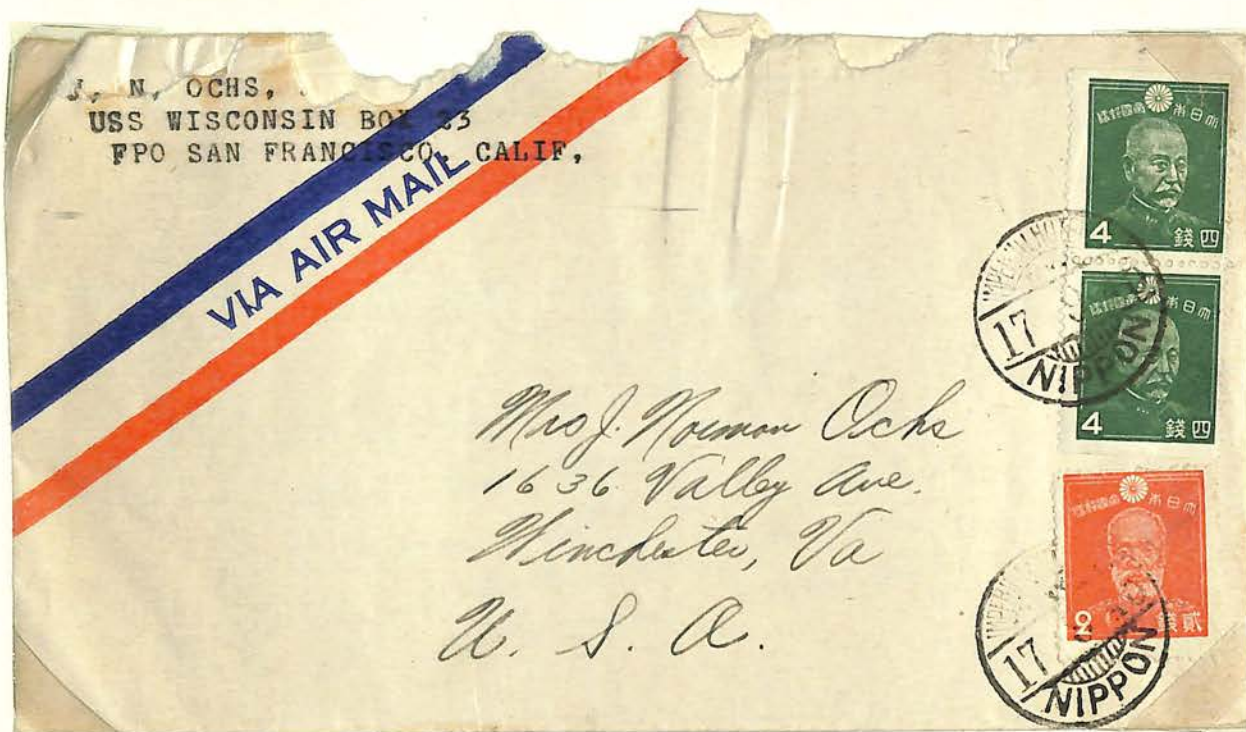 J. N. OCHS,
USS WISCONSIN BOX 23
FPO SAN FRANCISCO, CALIF,
VIA AIR MAIL
Mrs J. Norman Ochs
1636 Valley Ave.
Winchester, Va
U. S. A.
大日本帝國郵便
4 四錢
IMPERIAL HO
17
NIPPON
大日本帝國郵便
4 四錢
大日本帝國郵便
2 貳錢
17
NIPPON